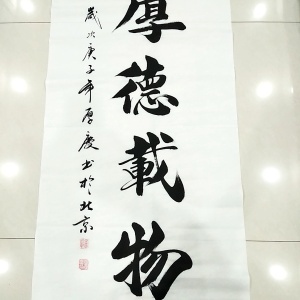 厚德載物
歲次庚子年厚慶书於北京